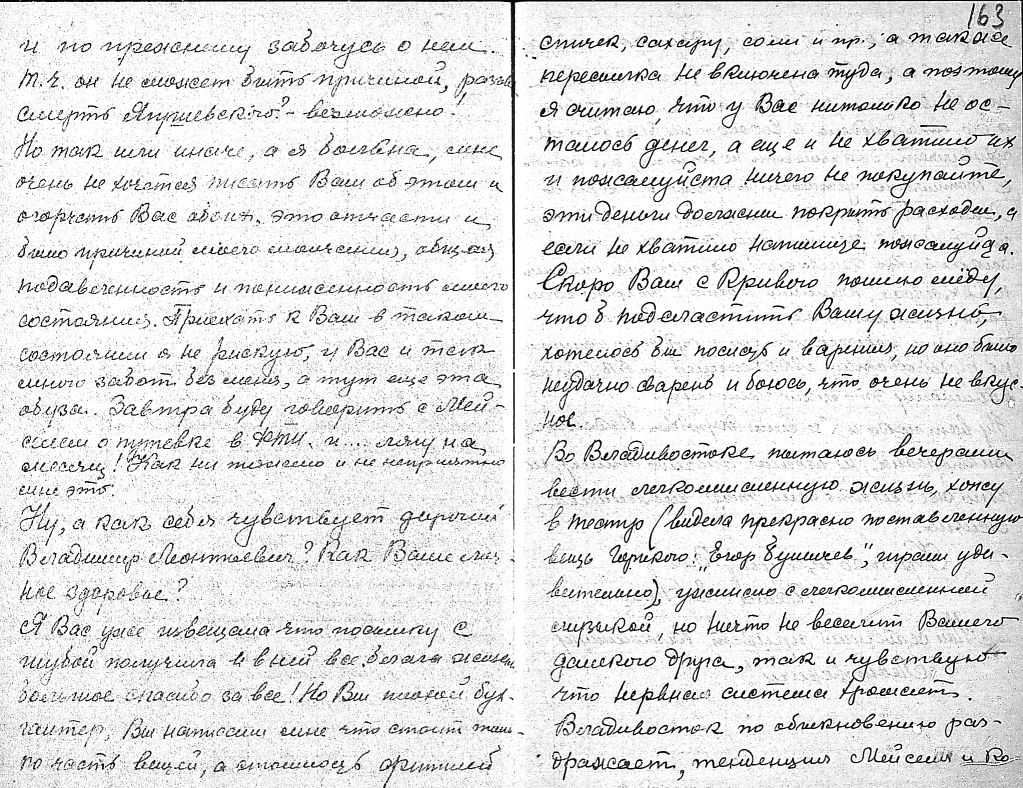 и по прежнему забочусь о нем.
Т.ч. он не может быть причиной, разве
смерть - возможно!
Но так или иначе, а я больна, мне
очень не хочется писать Вам об этом и
огорчать Вас обоих, это отчасти и
было причиной моего молчания, общая
подавленность и пониженность моего
состояния. Приехать к Вам в таком
состоянии я не рискую, у Вас и так
много забот без меня, а тут еще эта
обуза. Завтра буду говорить с Мей-
селем о путевке в и... лягу на
месяц! Как ни тяжело и не неприятно
мне это.
Ну, а как себя чувствует дорогой
Владимир Леонтьевич? Как Ваше лич-
ное здоровье?
Я Вас уже извещала что посылку с
шубой получила и в ней все,
большое спасибо за все! Но Вы плохой бух-
галтер, Вы написали мне что стоит толь-
ко часть вещей, а стоимость
163
спичек, сахару, соли и пр., а также
пересылка не включена туда, а поэтому
я считаю, что у Вас нитолько не ос-
талось денег, а еще и не хватило их
и пожалуйста ничего не покупайте,
эти деньги должны покрыть расходы, а
если не хватило напишите пожалуйста.
Скоро Вам с Кривого пошлю мёду,
что б подсластить Вашу жизнь,
хотелось бы послать и варения, но оно было
неудачно сварено и боюсь, что очень не вкус-
ное.
Во Владивостоке пытаюсь вечерами
вести легкомысленную жизнь, хожу
в театр (видела прекрасно поставленную
вещь Горького: „Егор Булычев", играли уди-
вительно), ужинаю с легкомысленной
музыкой, но ничто не веселит Вашего
далекого друга, так и чувствую
что нервная система хромает.
Владивосток по обыкновению раз-
дражает, тенденция Мейселя и Ко-